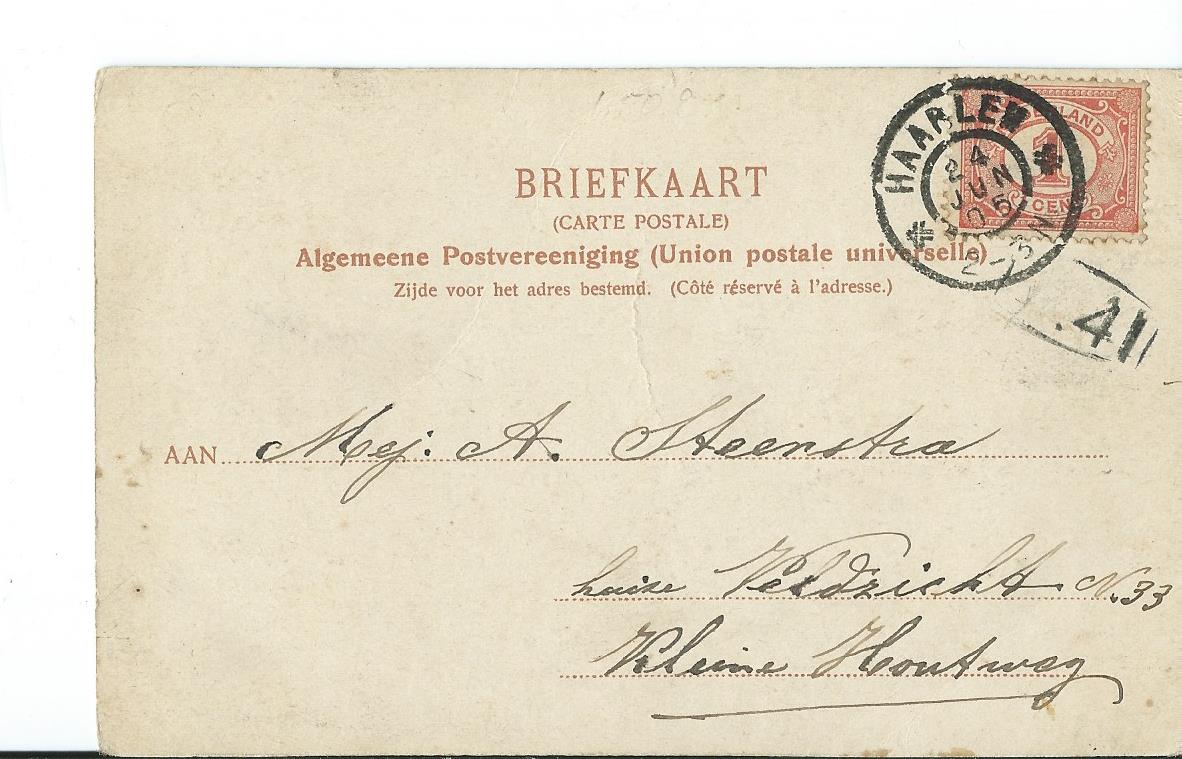 BRIEFKAART
(CARTE POSTALE)
Algemeene Postvereeniging (Union postale universelle)
Zijde voor het adres bestemd. (Côté réservé à l'adresse.)
HAARLEM
24
JUN
05
2-3N
LAND
1
CEN
.41
AAN Mej. A. Steenstra
huize Veldzicht N. 33
Kleine Houtweg